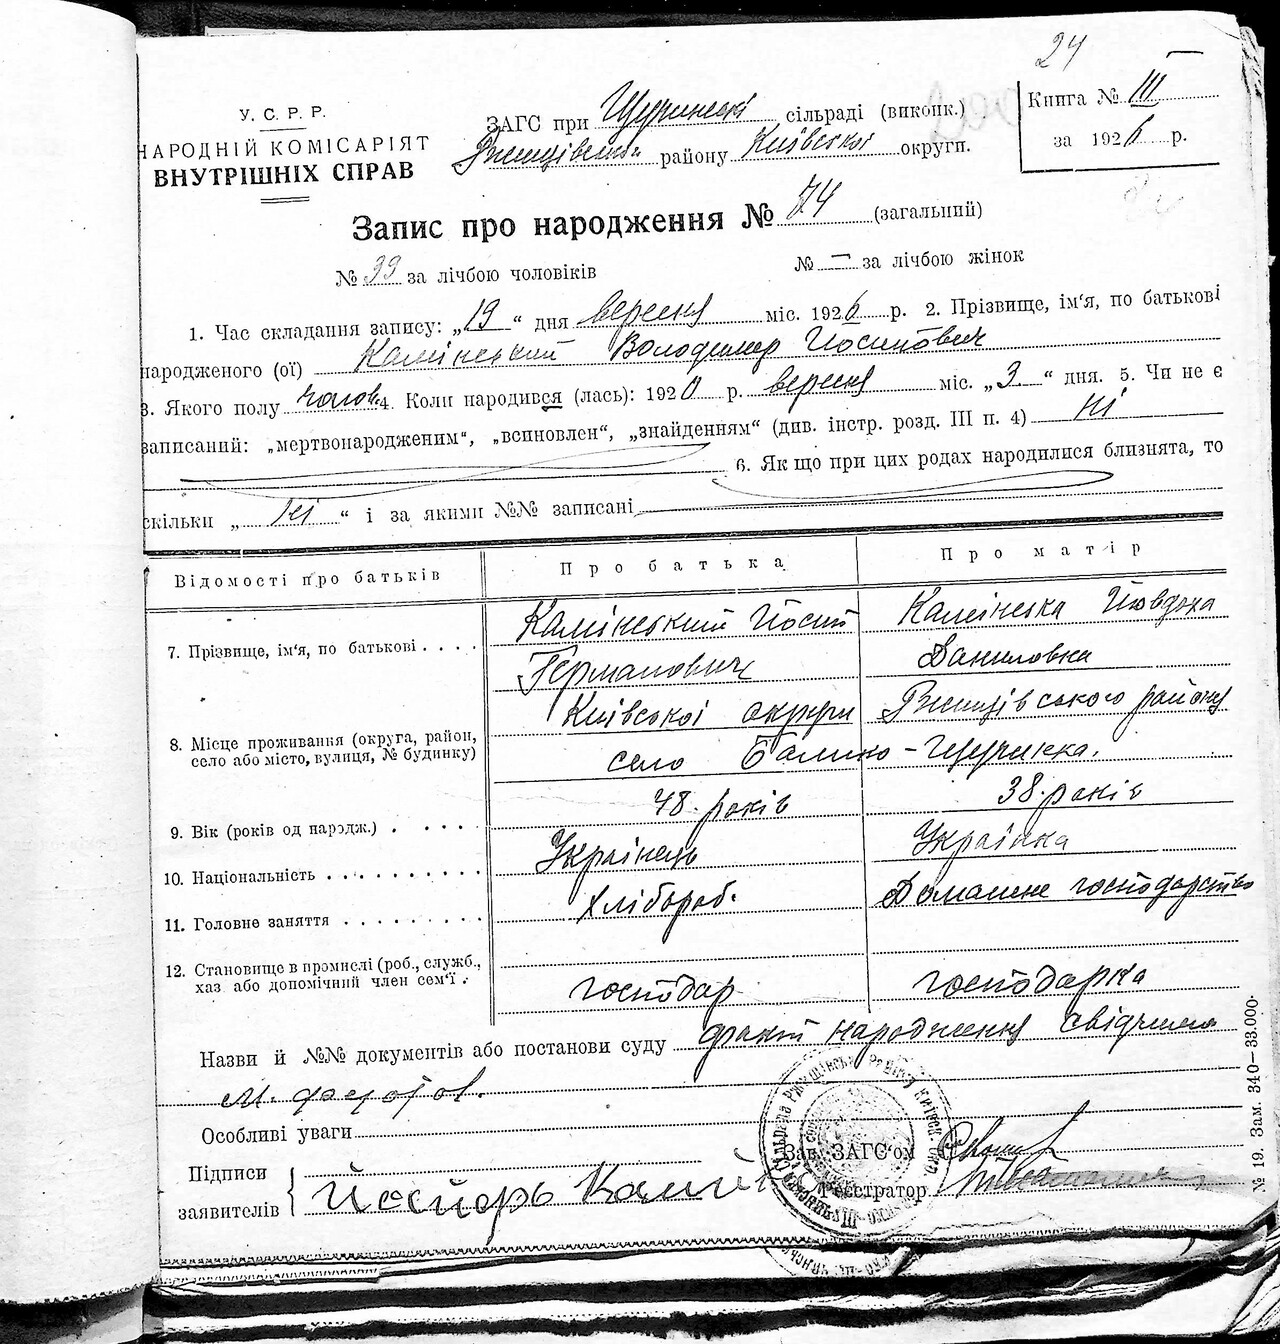 24
У.С.Р.Р.
НАРОДНІЙ КОМІСАРІЯТ
ВНУТРІШНІХ СПРАВ
ЗАГС при Щучинські сільраді (виконк.)
району Київської округи.
Книга № III
за 1926 р.
Запис про народження № 74 (загальний)
№ 39 за лічбою чоловіків № — за лічбою жінок
1. Час складання запису: „19“ дня вересня міс. 1926 р. 2. Прізвище, ім'я, по батькові
народженого (ої) Камінський Володимер Йосипович
3. Якого полу чолов. 4. Коли народився (лась): 1920 р. вересня міс. „3“ дня. 5. Чи не є
записаний: „мертвонародженим“, „всиновлен“, „знайденням“ (див. інстр. розд. III п. 4) ні
6. Як що при цих родах народилися близнята, то
скільки „ні“ і за якими №№ записані
Відомості про батьків Про батька Про матір
7. Прізвище, ім'я, по батькові . . . . Камінський Йосип Камінська Йовдоха
Германович Даниловна
8. Місце проживання (округа, район, село або місто, вулиця, № будинку) Київської округи Ржищівського району
село Балико-Щучинка.
9. Вік (років од народж.) . . . . . 48 років 38 років
10. Національність . . . . . . . . . . Українець Українка
11. Головне заняття . . . . . . . . . Хлібороб. Домашнє господарство
12. Становище в промислі (роб., служб., хаз або допомічний член сем'ї . господар господарка
Назви й №№ документів або постанови суду факт народження свідчили
Особливі уваги
Підписи
заявителів
Зав. ЗАГС'ом
Реєстратор
№ 19. Зам. 340—33.000.